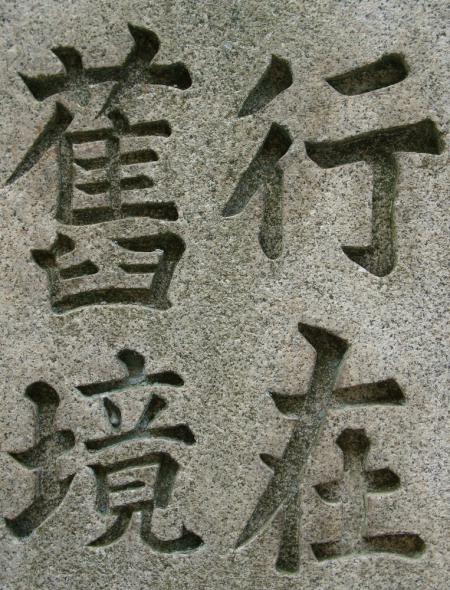 行在
舊境